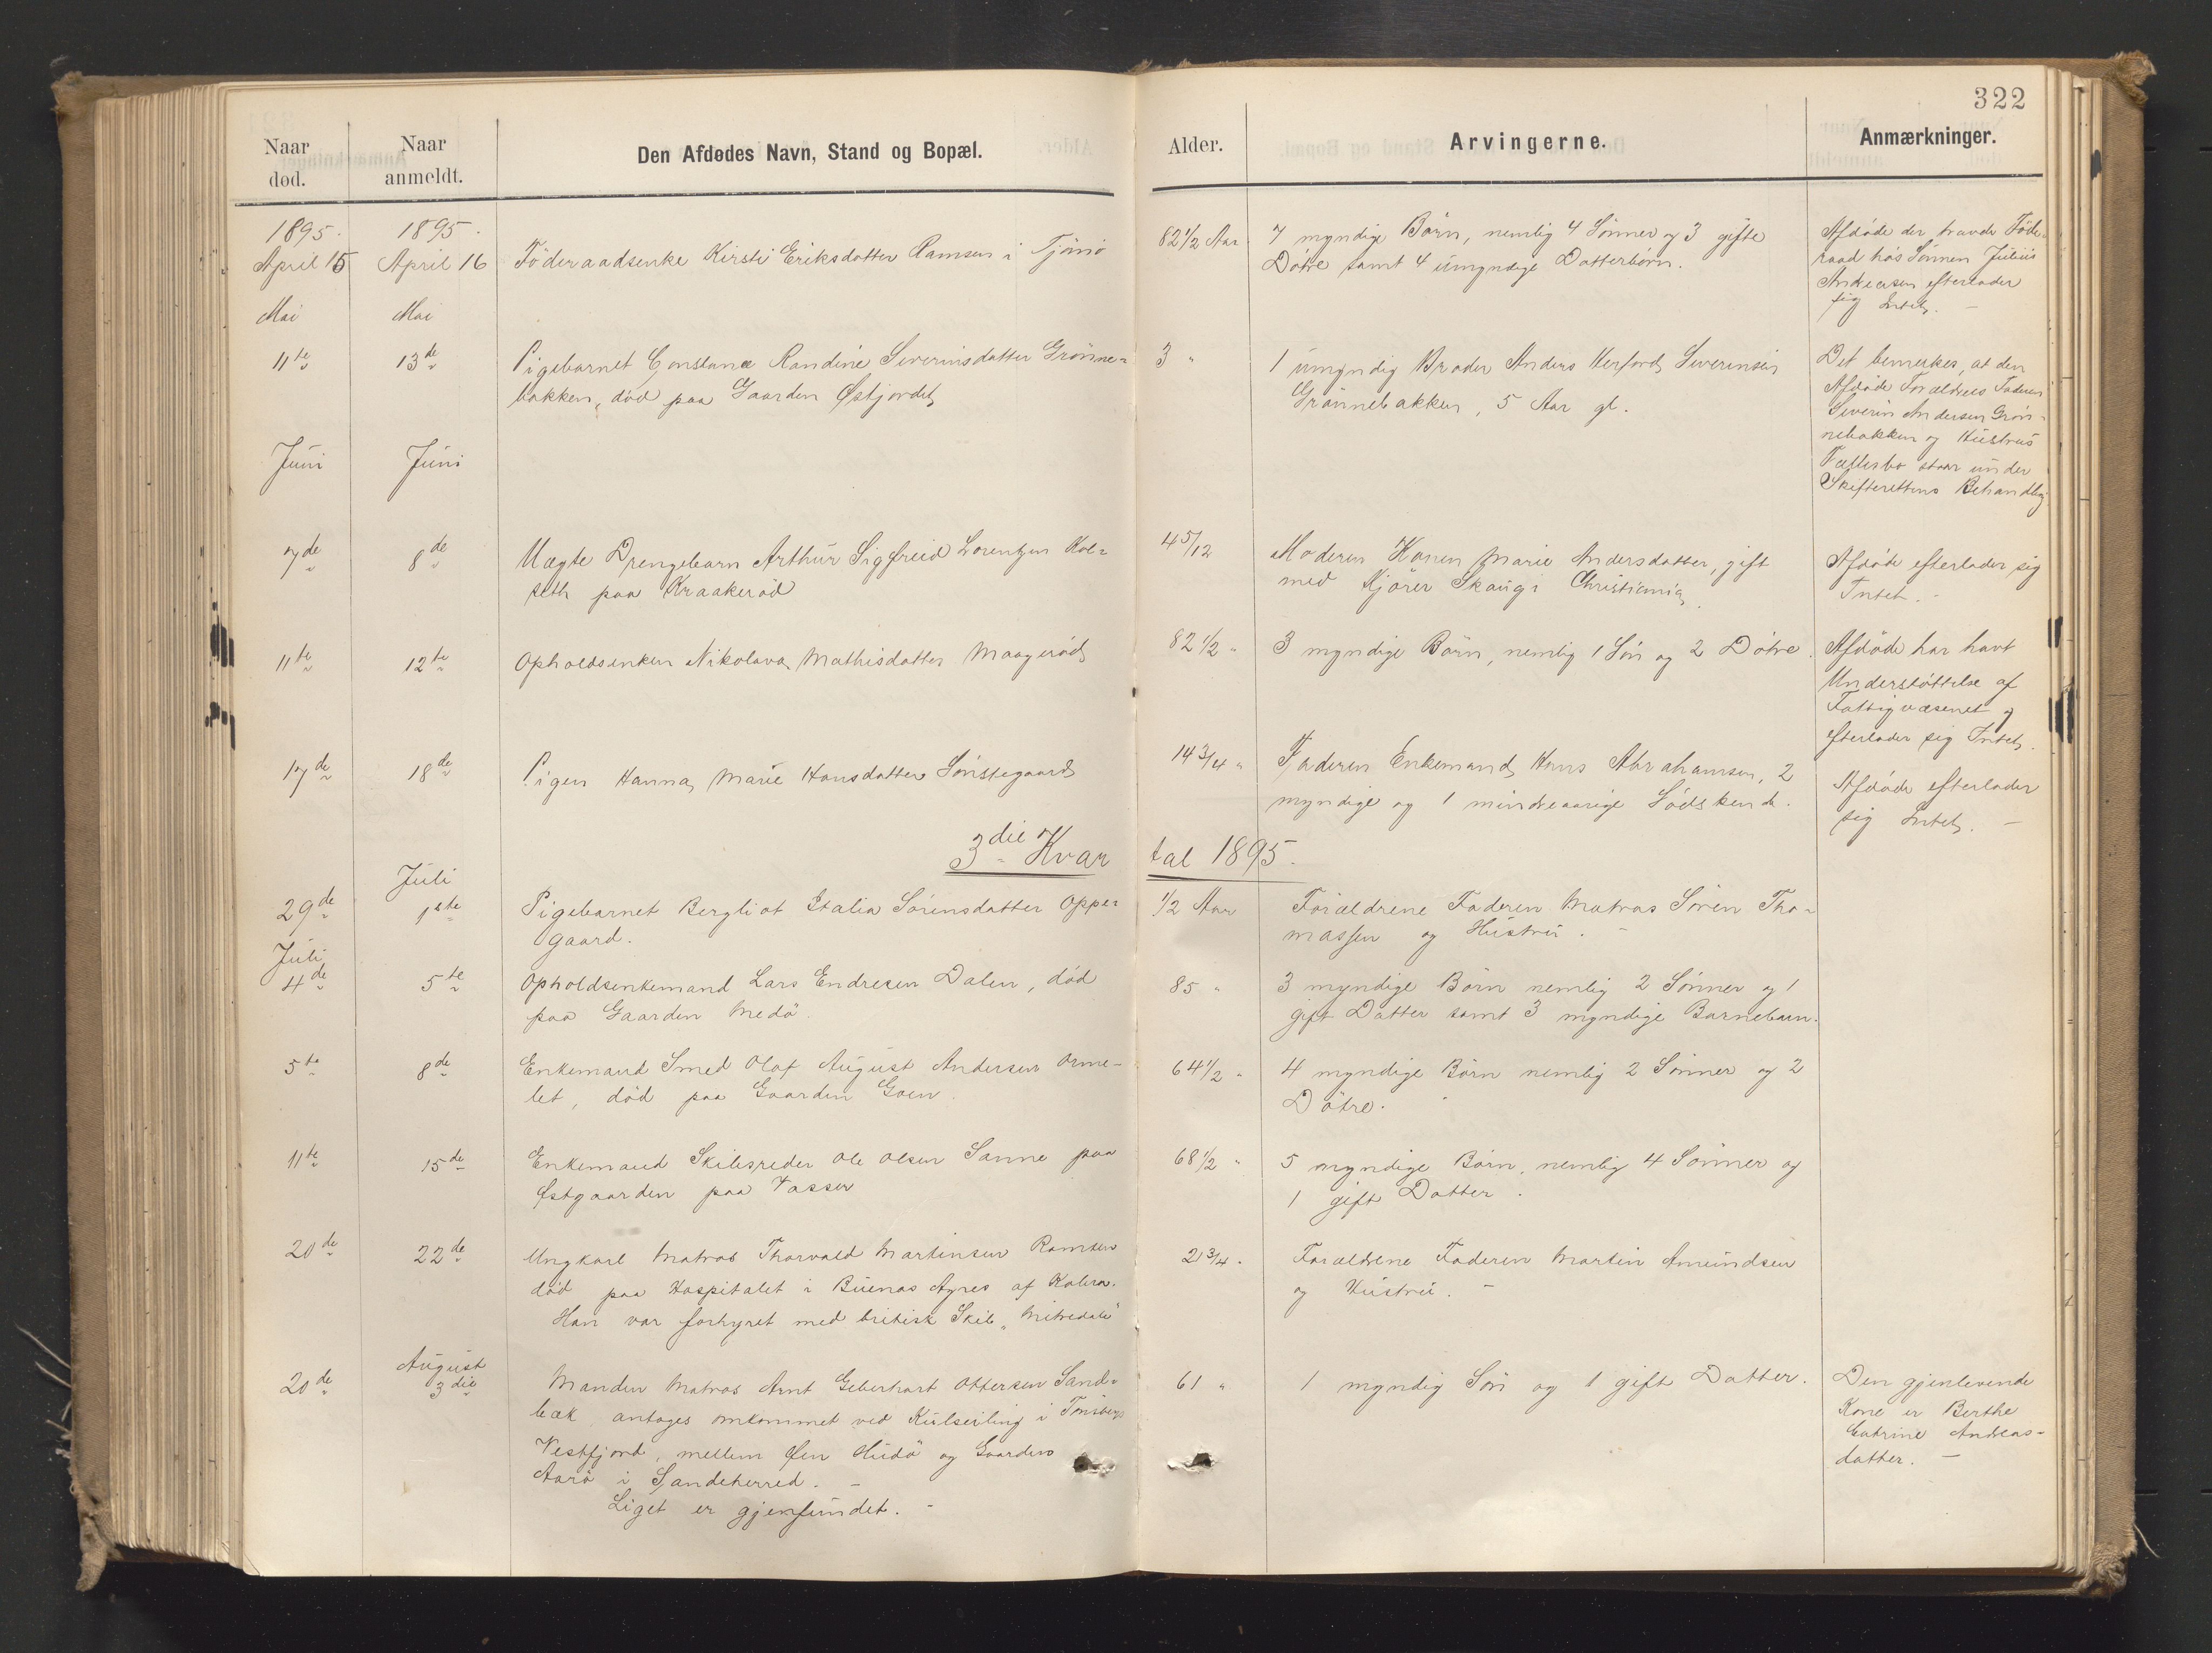 322
Naar død.
Naar anmeldt.
Den Afdødes Navn, Stand og Bopæl.
Alder.
Arvingerne.
Anmærkninger.
1895.
April 15
1895.
April 16
Föderaadsenke Kirsti Eriksdatter Ramsen i Tjömö
82 1/2 Aar
7 myndige Börn, nemlig 4 Sönner og 3 gifte
Dötre samt 4 umyndige Datterbörn.
Afdöde der havde Föde-
raad hos Sönnen Julius
Andersen efterlader
sig Intet. -
Mai
Mai
11te
13de
Pigebarnet Constance Randine Severinsdatter Grönne-
bakken, död paa Gaarden Østjordet
3 "
1 umyndig Broder Anders Herford Severinsen
Grönnebakken, 5 Aar gl.
Det bemerkes, at den
Afdöde Forældres Faderen
Severin Andersen Grön-
nebakken og Hustrus
Fællesbo staar under
Skifterettens Behandlig
Juni
Juni
7de
8de
Uægte Drengebarn Arthur Sigfreid Lorentzen Hol-
seth paa Kraakeröd
4 5/12
Moderen Konen Marie Andersdatter, gift
med Kjörer Skaug i Christiania.
Afdöde efterlader sig
Intet. -
11te
12te
Opholdsenken Nikolava Mathisdatter Maageröd
82 1/2 "
3 myndige Börn, nemlig 1 Sön og 2 Dötre.
Afdöde har havt
Understöttelse af
Fattigvæsenet og
efterlader sig Intet.
17de
18de
Pigen Hanna Marie Hansdatter Sönstegaard
14 3/4 "
Faderen Enkemand Hans Abrahamsen, 2
myndige og 1 mindreaarige Södskende.
Afdöde efterlader
sig Intet. -
3die Kvartal 1895.
29de
Juli
1ste
Pigebarnet Bergliot Italia Sörensdatter Opper-
gaard.
1/2 Aar
Forældrene Faderen Matros Sören Tho-
massen og Hustru. -
Juli
4de
5te
Opholdsenkemand Lars Endresen Dalen, död
paa Gaarden Medö.
85 "
3 myndige Börn nemlig 2 Sönner og 1
gift Datter samt 3 myndige Barnebarn.
5te
8de
Enkemand Smed Olaf August Andersen Orme-
let, död paa Gaarden Goen.
64 1/2 "
4 myndige Börn nemlig 2 Sönner og 2
Dötre.
11te
15de
Enkemand Skibsreder Ole Olsen Sanne paa
Østgaarden paa Vasser
68 1/2 "
5 myndige Börn, nemlig 4 Sönner og
1 gift Datter.
20de
22de
Ungkarl Matros Thorvald Martinsen Ramsen
död paa Hospitalet i Buenos Ayres af Kolera.
Han var forhyret med britisk Skib "Mitredale"
21 3/4 "
Forældrene Faderen Martin Amundsen
og Hustru. -
20de
August
3die
Manden Matros Arnt Geberhart Ottersen Sand-
bæk, antages omkommet ved Kulseiling i Tönsbergs
Vestfjord, mellem Øen Hudö og Gaarden
Aarö i Sandeherred. -
Liget er gjenfundet. -
61 "
1 myndig Sön og 1 gift Datter.
Den gjenlevende
Kone er Berthe
Catrine Andreas-
datter. -